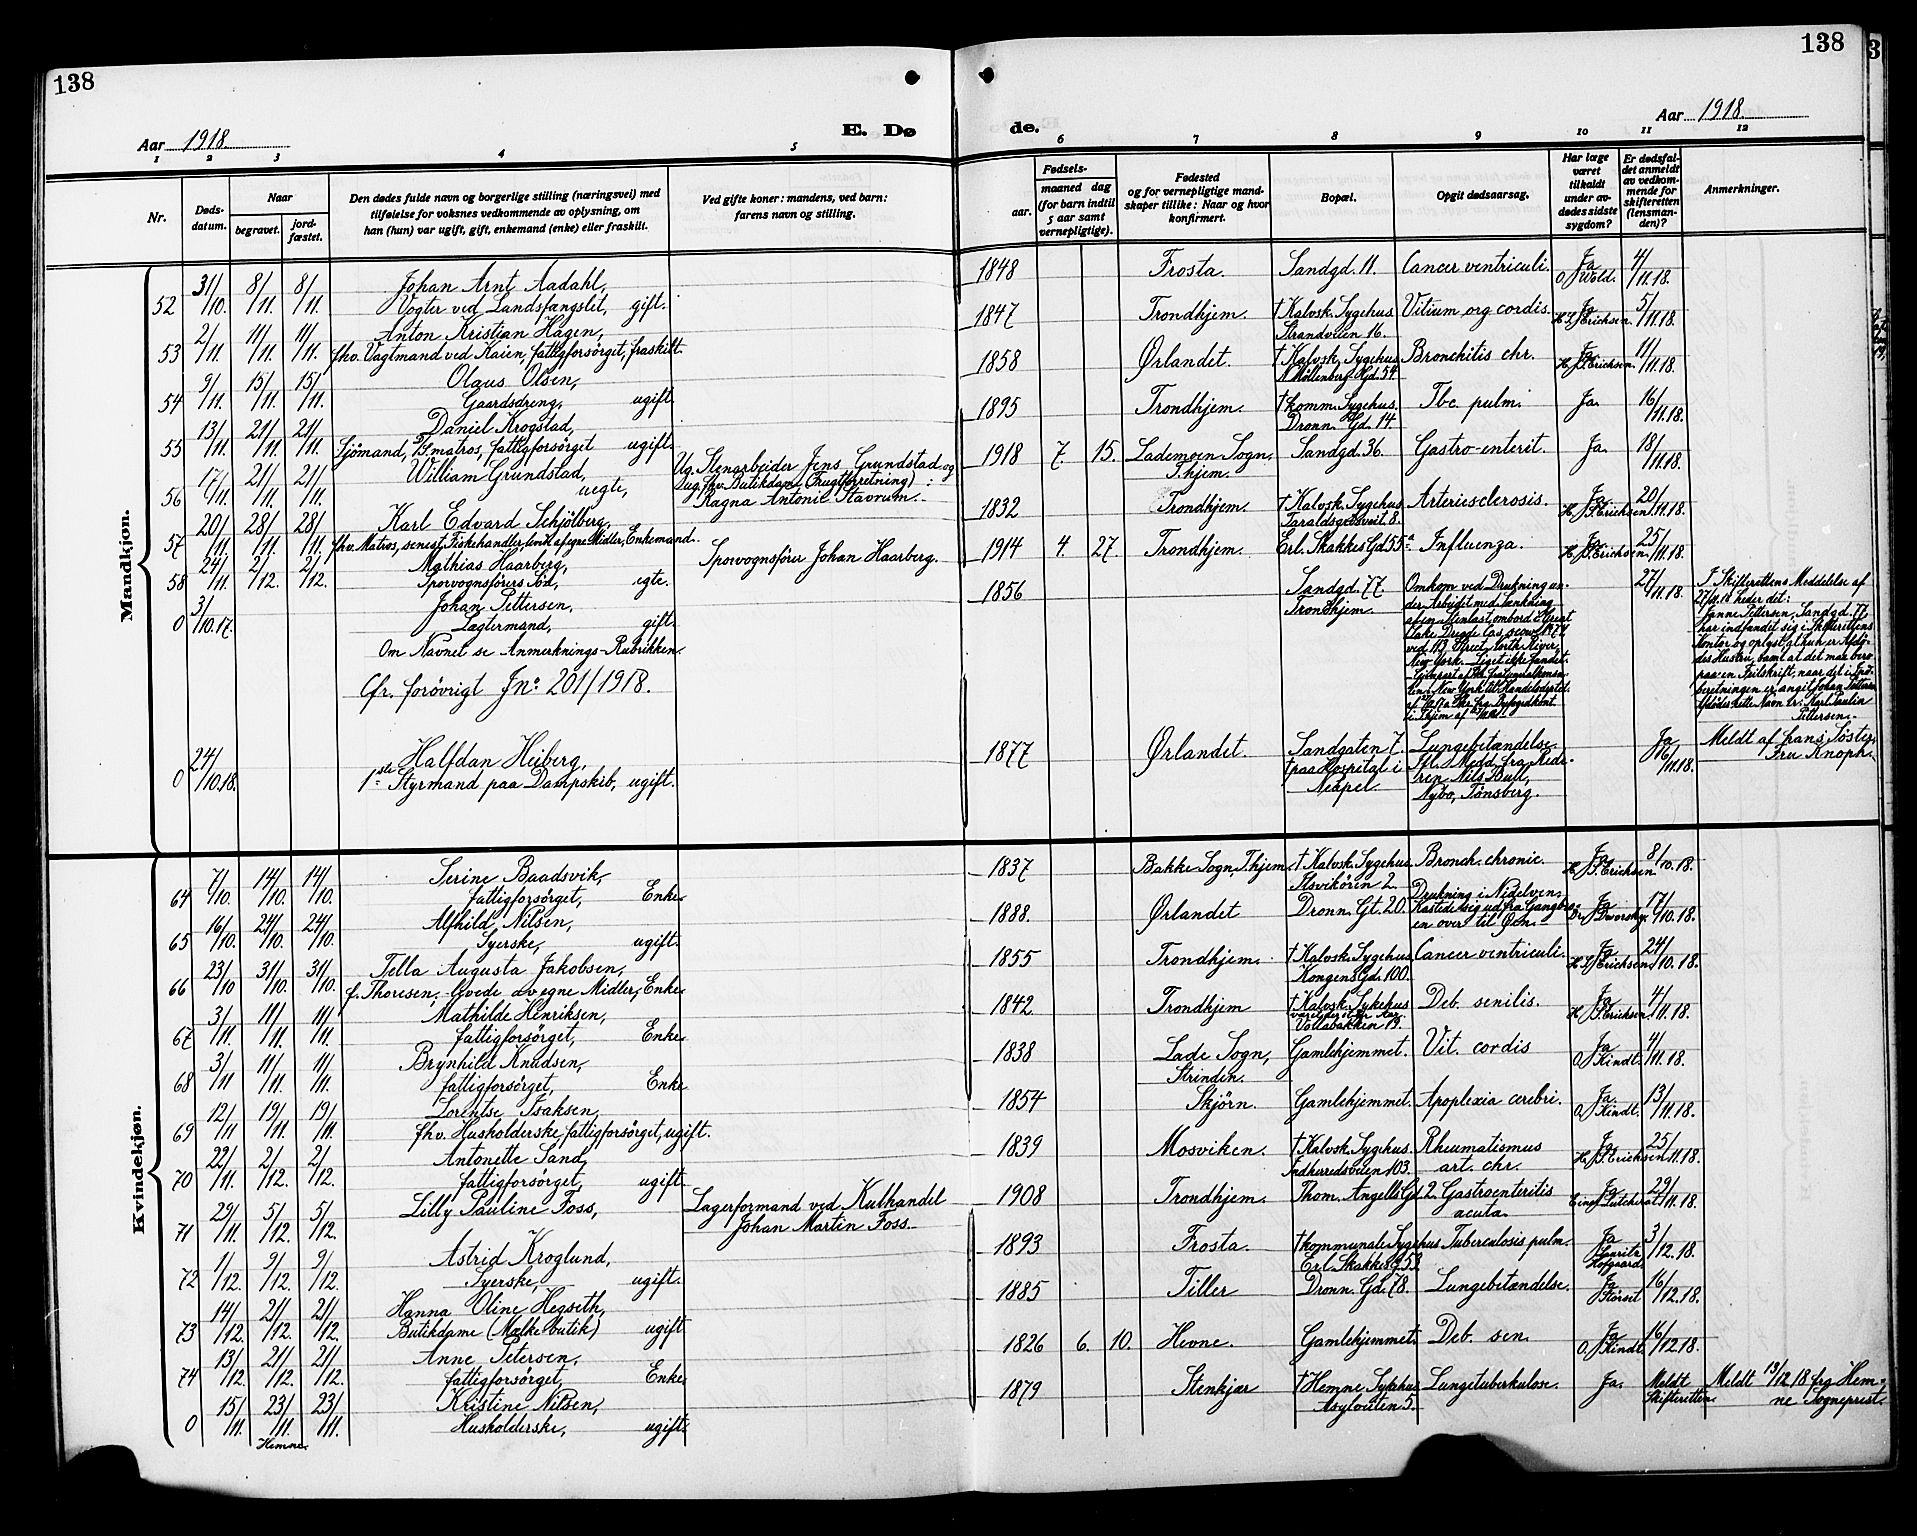 138
138
Aar 1918.
E. Dø
de.
Aar 1918.
1 2 3 4 5 6 7 8 9 10 11 12
Nr.
Døds-
datum.
Naar
begravet.
jord-
fæstet.
Den dødes fulde navn og borgerlige stilling (næringsvei) med
tilføielse for voksnes vedkommende av oplysning, om
han (hun) var ugift, gift, enkemand (enke) eller fraskilt.
Ved gifte koner: mandens, ved barn:
farens navn og stilling.
Fødsels-
aar.
maaned dag
(for barn indtil
5 aar samt
vernepligtige).
Fødested
og for vernepligtige mand-
skaper tillike: Naar og hvor
konfirmert.
Bopæl.
Opgit dødsaarsag.
Har læge
været
tilkaldt
under av-
dødes sidste
sygdom?
Er dødsfal-
det anmeldt
av vedkom-
mende for
skifteretten
(lensman-
den)?
Anmerkninger.
Mandkjøn.
52 31/10. 8/11. 8/11. Johan Arnt Aadahl, 1848 Frosta. Sandgd. 11. Cancer ventriculi. Ja O. Wold. 4/11.18.
Vogter ved Landsfængslet, gift.
53 2/11. 11/11. 11/11. Anton Kristian Hagen, 1847 Trondhjem. † Kalvsk. Sygehus Vitium org. cordis. Ja 5/11.18.
fhv. Vagtmand ved Kaien, fattigforsørget, fraskilt. Strandveien 16. H. J. Erichsen.
54 9/11. 15/11. 15/11. Olaus Olsen, 1858 Ørlandet. † Kalvsk. Sygehus Bronchitis chr. Ja 11/11.18.
Gaardsdreng, ugift. N. Møllenberg. Gd. 54 H. J. Erichsen.
55 13/11. 21/11. 21/11. Daniel Krogstad, 1895 Trondhjem. † komm. Sygehus. Tbc. pulm. Ja. 16/11.18.
Sjömand, matros, fattigforsørget ugift. Dronn. Gd. 14.
56 17/11. 21/11. 21/11. William Grundstad, Ug. Stenarbeider Jens Grundstad og 1918 7. 15. Lademoen Sogn, Sandgd. 36. Gastro-enterit. Ja. 18/11.18.
uegte, ug. fhv. Butikdame (Frugtforretning) : T.hjem.
Ragna Antonie Stavrum.
57 20/11. 28/11. 28/11. Karl Edvard Schjölberg, 1832 Trondhjem. † Kalvsk. Sygehus Arteriesclerosis. Ja 20/11.18.
fhv. Matros, senest Fiskehandler, levde af egne Midler, Enkemand. Taraldsgaardsveit. 8. H. J. Erichsen.
58 24/11. 2/12. 2/12. Mathias Haarberg, Sporvognsfører Johan Haarberg. 1914 4. 27 Trondhjem. Erl. Skakkes Gd 55a Influenza. Ja 25/11.18.
Sporvognsførers Søn, egte. H. J. Erichsen.
0 3/10.17. Johan Pettersen, 1856 Sandgd. 77 Omkom ved Drukning un- 27/11.18. I Skifterettens Meddelelse af
Lægtermand, gift. Trondhjem. der Arbeidet med Lænkning 27/11.18 heder det:
Om Navnet se Anmerknings-Rubrikken. ved 113 Street, North River,
New York. Liget ikke fundet.
Cfr. forøvrigt Jno. 201/1918.
Janne Pettersen, Sandgd. 77,
har indfandet sig i Skifterettens
Kontor og oplyst, at hun er Afdø-
des Hustru, samt at det maa bero
paa en Feilskrift, naar det i Ind-
beretningen er angit Johan Pettersen
Afdødes rette Navn er: Karl Paulin
Pettersen.
0 24/10.18. Halfdan Heiberg, 1877 Ørlandet. Sandgaten 7. Lungebetændelse. Ja 16/11.18. Meldt af hans Søster,
1ste Styrmand paa Dampskib, ugift. † paa Hospital i Tfl. Medd. fra Rede- Fru Knoph.
Neapel. ren Nils Bull,
Nybo, Tønsberg.
Kvindekjøn.
64 7/10. 14/10. 14/10. Serine Baadsvik, 1837 Bakke Sogn, T.hjem. † Kalvsk. Sygehus Bronch. chronic. Ja 8/10.18.
fattigforsørget, Enke. Ilsvikören 2. H. J. Erichsen
65 16/10. 24/10. 24/10. Alfhild Nilsen, 1888. Ørlandet Dronn. Gt. 20. Drukning i Nidelven. Ja 17/10.18.
Syerske, ugift. Kastede sig ud fra Gangbro-
en over til Øen. Dr. Dworsky.
66 23/10 31/10. 31/10. Tella Augusta Jakobsen, 1855 Trondhjem. † Kalvsk. Sygehus Cancer ventriculi. Ja 24/10.18.
f. Thoresen, levede av egne Midler, Enke. Kongens Gd. 100. H. J. Erichsen
67 3/11. 11/11. 11/11. Mathilde Henriksen, 1842 Trondhjem † Kalvsk. Sykehus Deb. senilis. Ja 4/11.18.
fattigforsørget, Enke. Vollabakken 19. H. J. Erichsen
68 3/11 11/11. 11/11. Brynhild Knudsen, 1838 Lade Sogn, Gamlehjemmet. Vit. cordis Ja 4/11.18.
fattigforsørget, Enke Strinden. O. Kindt.
69 12/11 19/11. 19/11. Lorentse Isaksen, 1854 Skjörn. Gamlehjemmet. Apoplexia cerebri. Ja. 13/11.18.
fhv. Husholderske, fattigforsørget, ugift. O. Kindt.
70 22/11. 2/12. 2/12. Antonette Sand, 1839 Mosviken. † Kalvsk. Sygehus. Rheumatismus Ja 25/11.18.
fattigforsørget, ugift. Indherredsveien 103. art. chr. H. J. Erichsen
71 29/11. 5/12. 5/12. Lilly Pauline Foss, Lagerformand ved Kulhandel 1908 Trondhjem. Thom. Angells Gd 2. Gastroenteritis Ja 29/11.18.
Johan Martin Foss. acuta.
72 1/12. 9/12. 9/12. Astrid Kroglund, 1893 Frosta. † kommunale Sygehus Tuberculosis pulm. Ja 3/12.18.
Syerske, ugift. Erl. Skakkes G. 53. Lauritz Hofgaard.
73 14/12. 21/12. 21/12. Hanna Oline Hegseth, 1885 Tiller Dronn. Gd. 78. Lungebetændelse. Ja 16/12.18.
Butikdame (Melkebutik) ugift Störset
74 13/12. 21/12. 21/12. Anne Petersen, 1826 6. 10. Hevne. Gamlehjemmet. Deb. sen. Ja 16/12.18.
fattigforsørget, Enke O. Kindt.
0 15/11. 23/11. 23/11. Kristine Nilsen, 1879 Stenkjær † Hemne Sykehus Lungetuberkulose. Ja. Meldt Meldt 13/12.18 fra Hem-
Husholderske, ugift. Asylveiten 5. Skifteretten. ne Sogneprest.
Hemne.